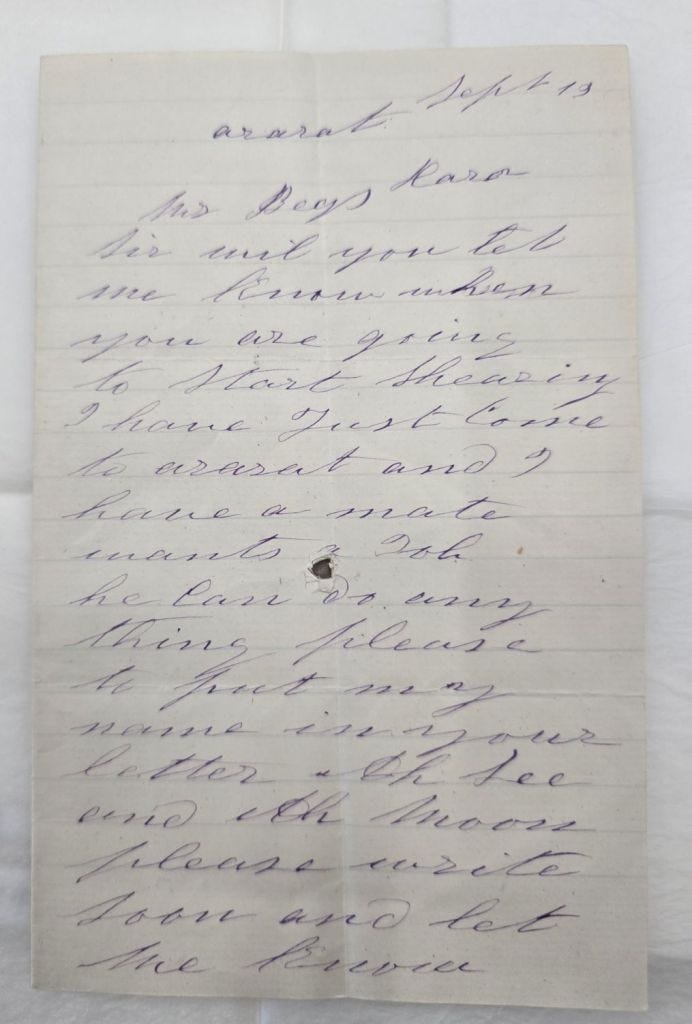 Sept 19
ararat
Mr Begs Rara
Sir wil you let
me know when
you are going
to Start Shearing
I have Just Come
to ararat and I
have a mate
wants a Job
he Can do any
thing please
to put my
name in your
letter Ah See
and Ah Moon
please write
Soon and let
Me Know